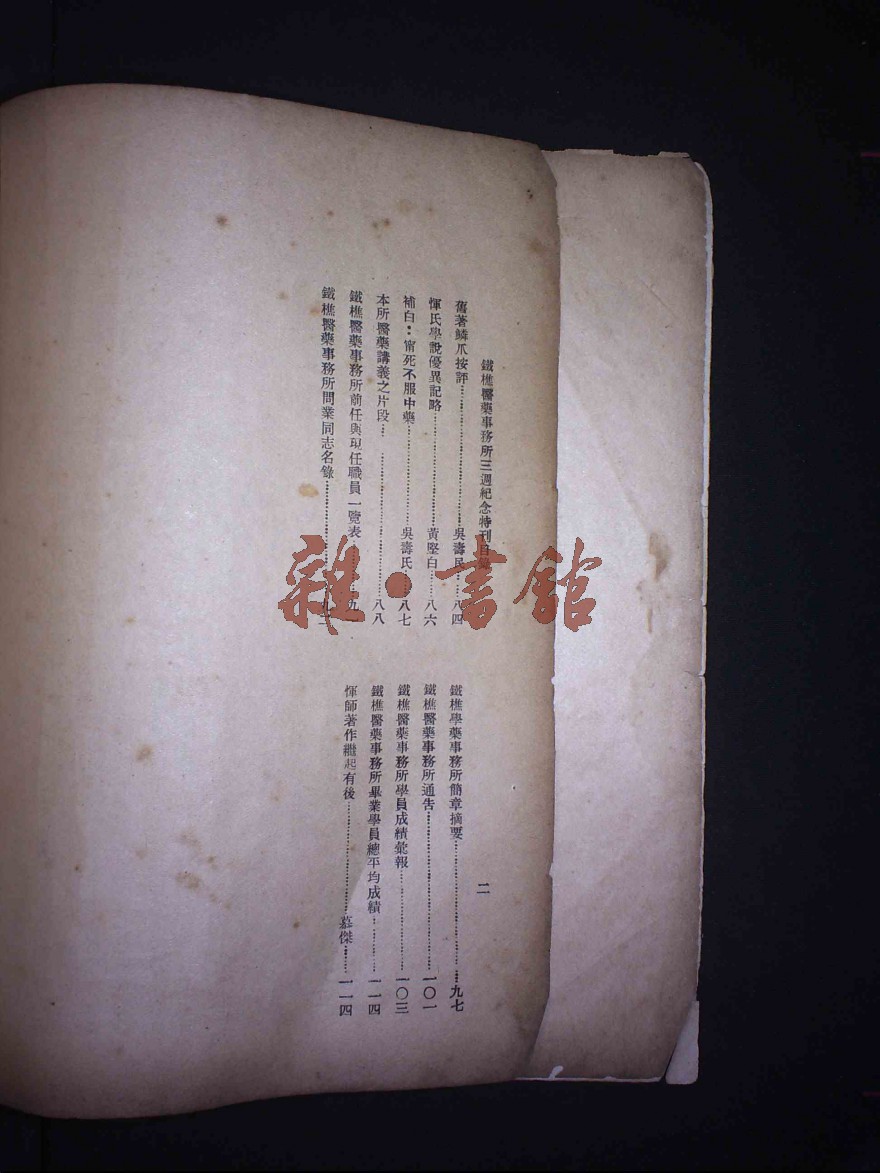 鐵樵醫藥事務所三週紀念特刊目錄
二
舊著鱗爪按評……吳壽民…八四
惲氏學說優異記略……黃堅白……八六
補白：甯死不服中藥……吳壽氏…八七
本所醫藥講義之片段……八八
鐵樵醫藥事務所前任與現任職員一覽表……九一
鐵樵醫藥事務所問業同志名錄……九二
鐵樵學藥事務所簡章摘要……九七
鐵樵醫藥事務所通告……一〇一
鐵樵醫藥事務所學員成績彙報……一〇三
鐵樵醫藥事務所畢業學員總平均成績……一一四
惲師著作繼起有後……慕傑……一一四
雜·書館